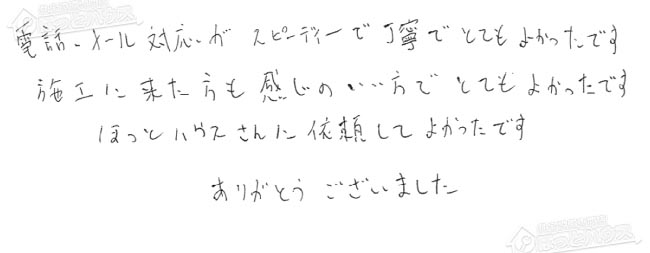 電話、メール対応がスピーディーで丁寧でとてもよかったです
施工に来た方も感じのいい方でとてもよかったです
ほっとハウスさんに依頼してよかったです
ありがとうございました
ほっとハウス